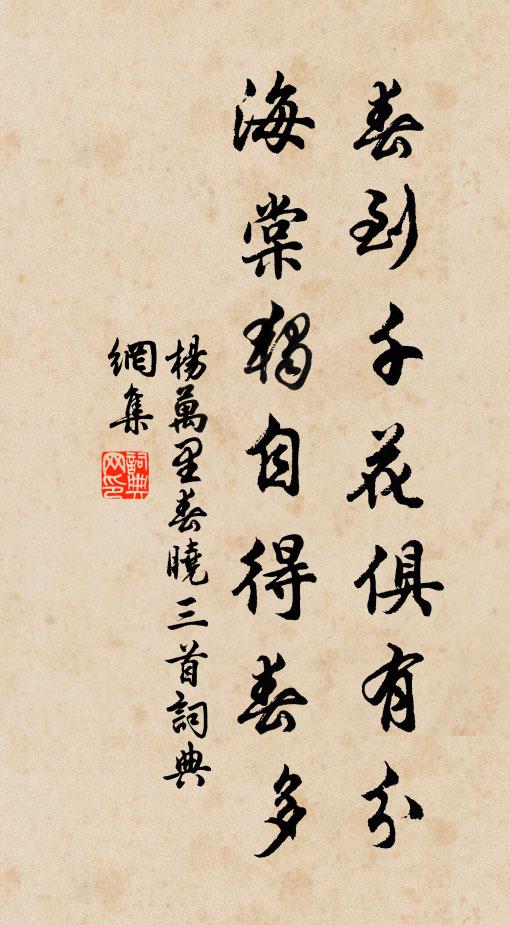 春到千花俱有分
海棠獨自得春多
楊萬里春曉三首詞典
網集
詞典
网印